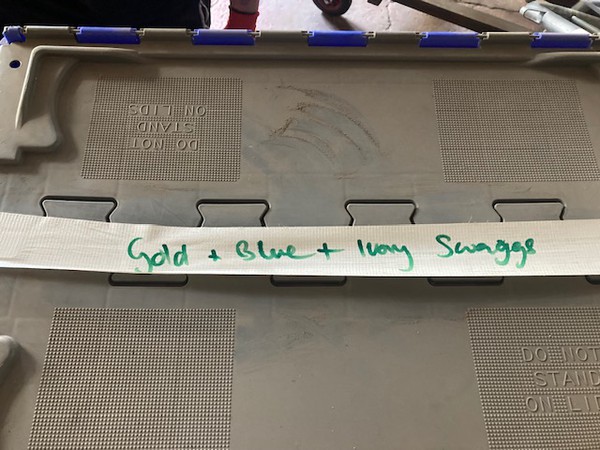 DO NOT
STAND
ON LIDS
Gold + Blue + Ivory Swaggs
DO NOT
STAND
ON LI